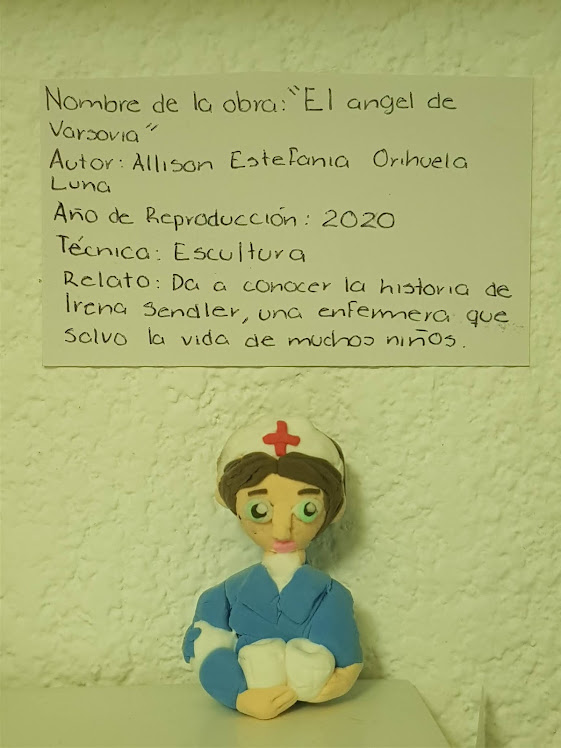 Nombre de la obra: "El angel de
Varsovia"
Autor: Allison Estefania Orihuela
Luna
Año de Reproducción: 2020
Técnica: Escultura
Relato: Da a conocer la historia de
Irena Sendler, una enfermera que
salvo la vida de muchos niños.